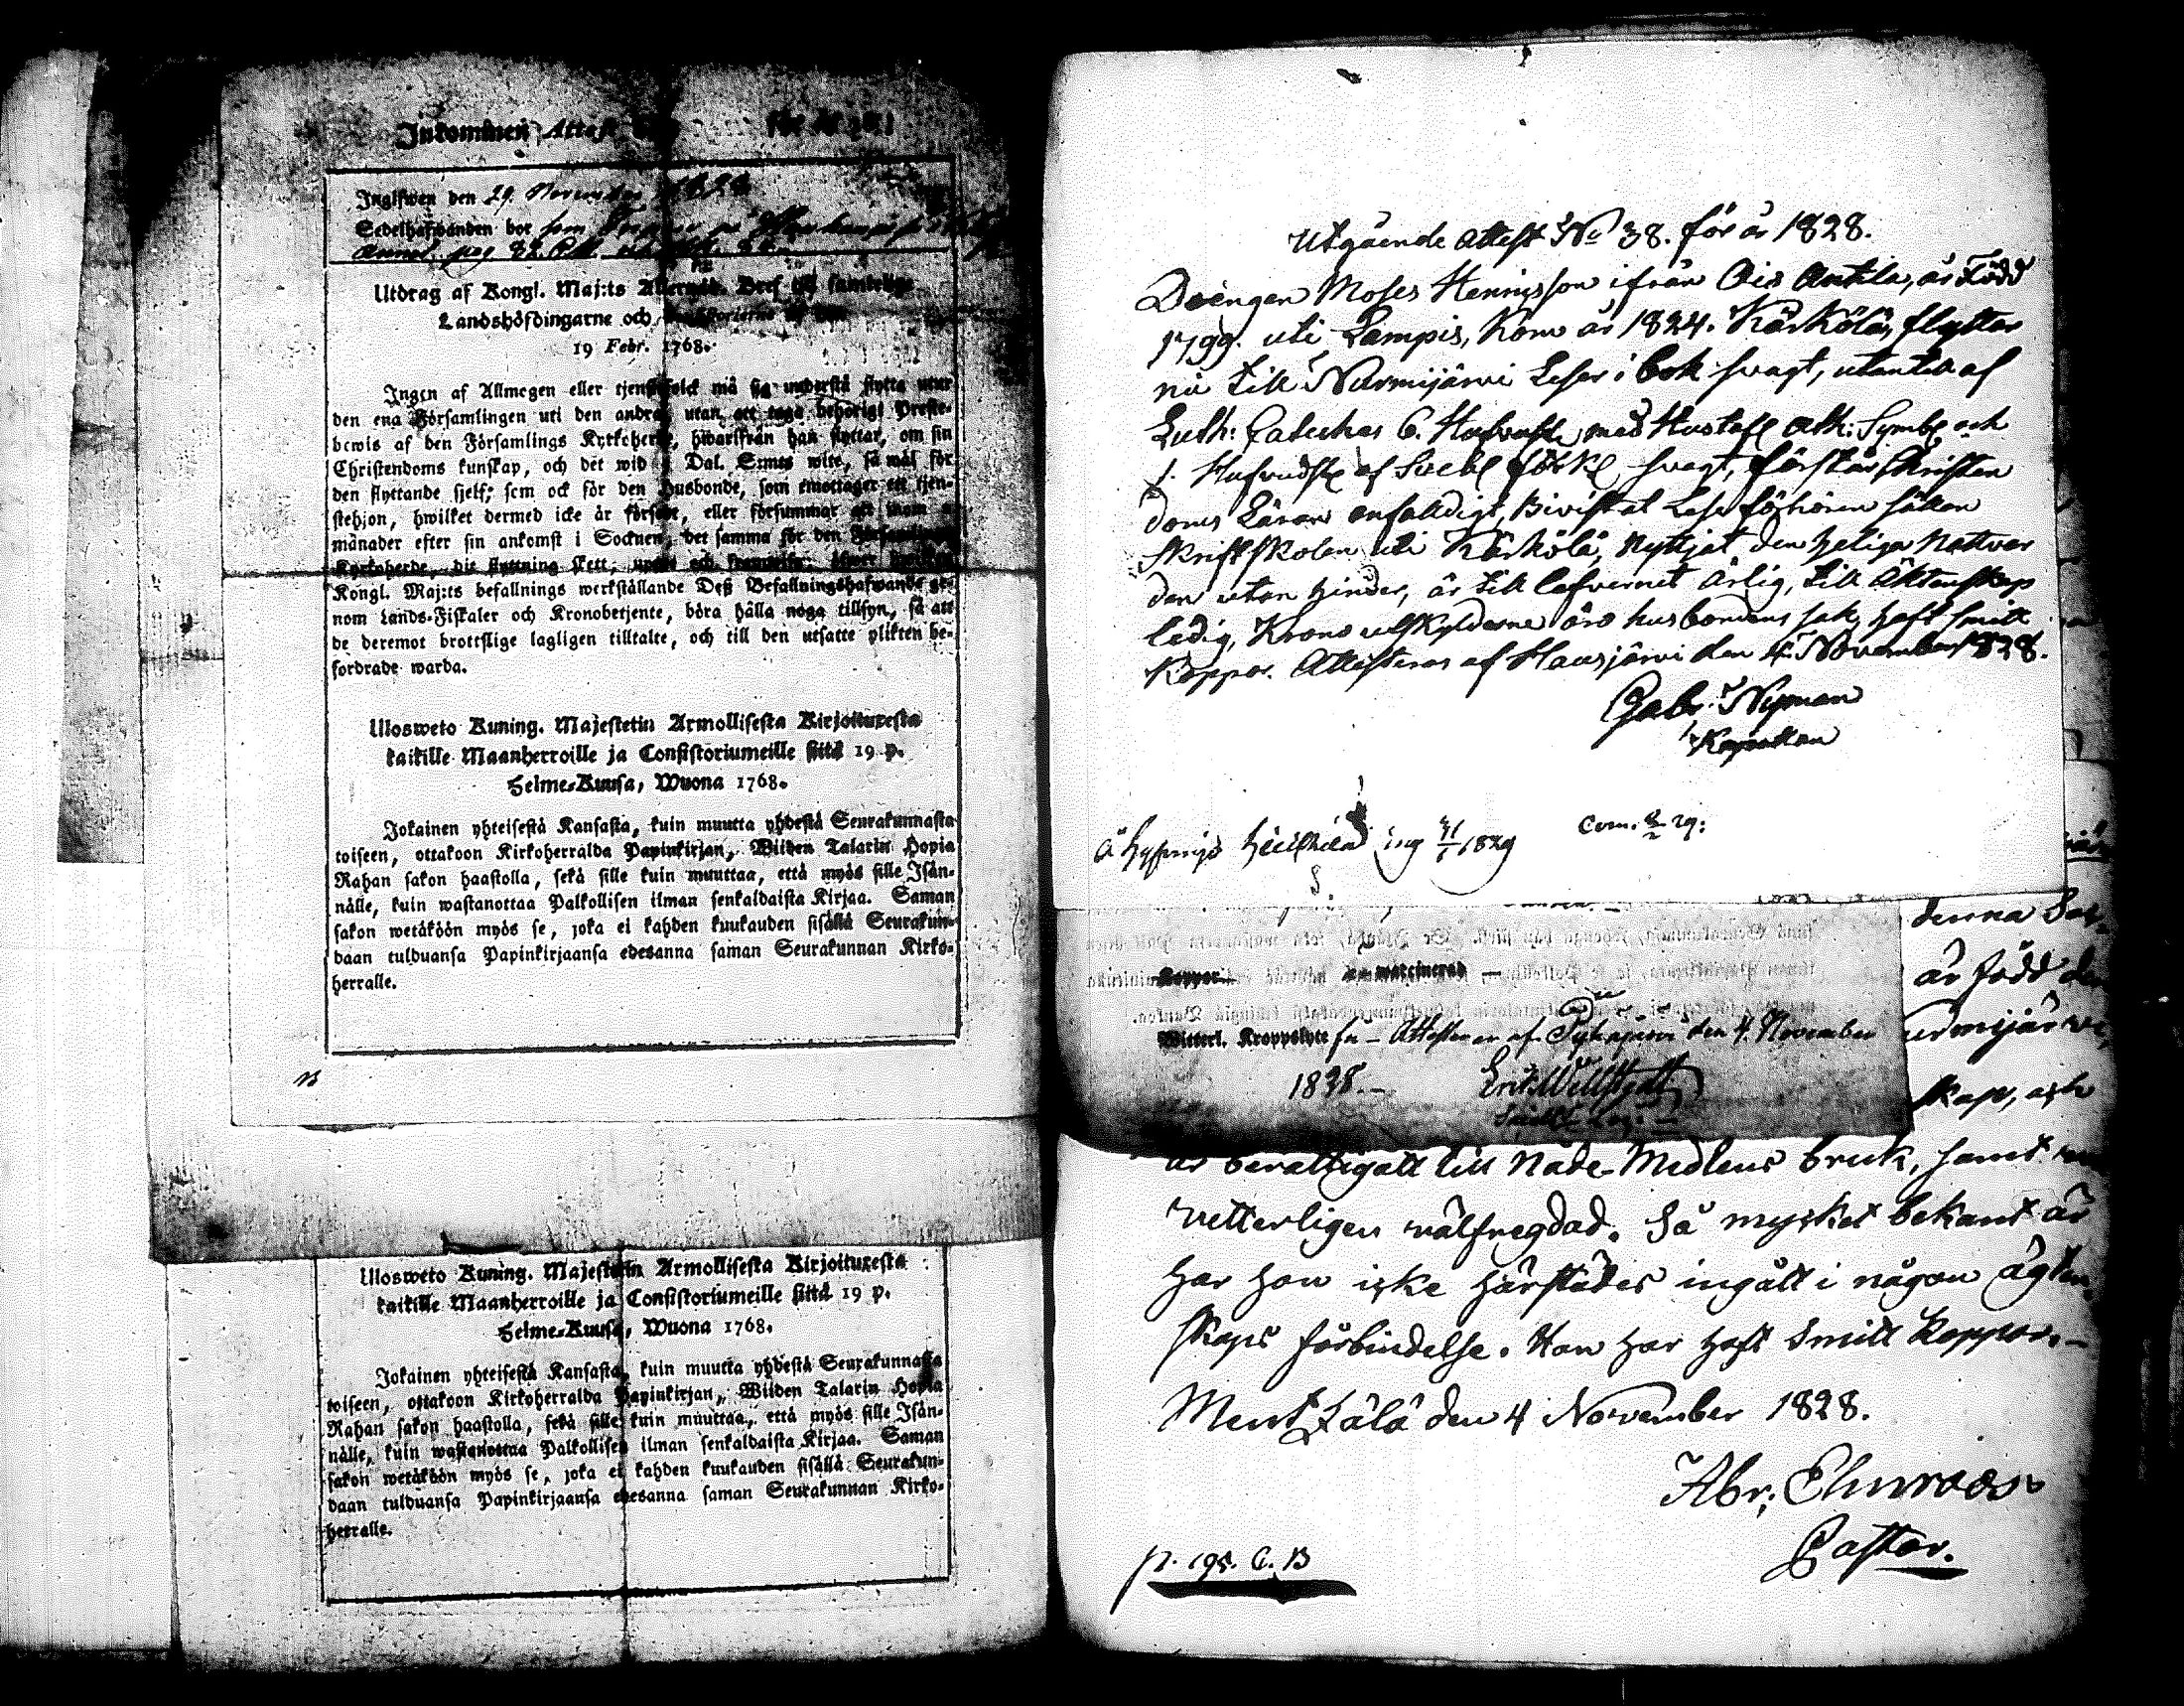 Inkommen Attest
Inglefwen den 29. November 1828
Sedelhafwanden bor som
Utdrag af Kongl. Maj:ts Allernåd. Bref till samtelige
Landshöfdingarne och
19 Febr. 1768.
Ingen af Allmogen eller tjenstefolck må sig understå flytta utur
den ena Församlingen uti den andra, utan att taga behörigt Preste-
bewis af den Församlings Kyrkoherde, hwarifrån han flyttar, om sin
Christendoms kunskap, och det wid 5 Dal. S:mts wite, så wäl för
den flyttande sjelf, som ock för den Husbonde, som emottager ett tjen-
stehjon, hwilket dermed icke är försedt, eller försummar att inom
månader efter sin ankomst i Socknen, det samma för den Församlingens
Kyrkoherde, dit flyttning skett, upte och
Kongl. Maj:ts befallnings werkställande Deß Befallningshafwande ge-
nom Lands-Fiskaler och Kronobetjente, böra hålla noga tillsyn, så att
de deremot brottslige lagligen tilltalte, och till den utsatte plikten be-
fordrade warda.
Ulosweto Kuning. Majestetin Armollisesta Kirjoituxesta
kaikille Maanherroille ja Consistoriumeille siitä 19 p.
Helme-Kuusa, Wuona 1768.
Jokainen yhteisestä Kansasta, kuin muutta yhdestä Seurakunnasta
toiseen, ottakoon Kirkoherralda Papinkirjan, Wiiden Talarin Hopia
Rahan sakon haastolla, sekä sille kuin muuttaa, että myös sille Isän-
nälle, kuin wastanottaa Palkollisen ilman senkaldaista Kirjaa. Saman
sakon wetäköön myös se, joka ei kahden kuukauden sisällä Seurakun-
daan tulduansa Papinkirjaansa edesanna saman Seurakunnan Kirko-
herralle.
Ulosweto Kuning. Majestetin Armollisesta Kirjoituxesta
kaikille Maanherroille ja Consistoriumeille siitä 19 p.
Helme-Kuusa, Wuona 1768.
Jokainen yhteisestä Kansasta, kuin muutta yhdestä Seurakunnasta
toiseen, ottakoon Kirkoherralda Papinkirjan, Wiiden Talarin Hopia
Rahan sakon haastolla, sekä sille kuin muuttaa, että myös sille Isän-
nälle, kuin wastanottaa Palkollisen ilman senkaldaista Kirjaa. Saman
sakon wetäköön myös se, joka ei kahden kuukauden sisällä Seurakun-
daan tulduansa Papinkirjaansa edesanna saman Seurakunnan Kirko-
herralle.
Utgående Attest No 38. för år 1828.
Drängen Moses Henricsson ifrån Ois Anttila, är Född
1799. uti Lampis, Kom år 1824. Kärkölä, flyttar
nu till Nurmijärvi Läser i bok svagt, utantill af
Luth: Cateches 6. Hufvudst. med Hustafl. Ath: Symb. och
1. Hufvudst af Sveb. förkl svagt, förstår Christen
doms Läran enfaldigt, Bivistat Läseförhören sällan
Skriftskolan uti Kärkölä, nyttjat den heliga Nattvar
den utan hinder, är till lefvernet ärlig, till Äktenskap
ledig, Kronoutskylderne äro husbondens sak, haft smitt
Koppor. Attesteras af Hausjärvi den 4 November 1828.
Gabr. Nyman
Kapellan
ing 1829
Koppor vaccinerad —
Witterl. Kroppslyte Attesteras af den 4. November
1828.—
denna
är född den
Nurmijärvi,
skap, och
är berättigatt till Nåde-Medlens bruk, samt
vetterligen välfregdad. Så mycket bekant är
har hon icke härstädes ingått i någon ägten-
skaps förbindelse. Hon har haft Smitt Koppor.—
Mentzälä den 4 November 1828.
Abr:
Pastor.
p. 195. C. B